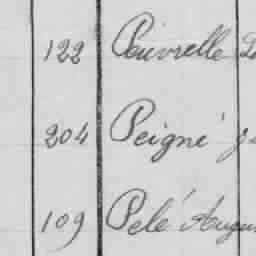 122 Poivrelle
204 Peigné
109 Pelé